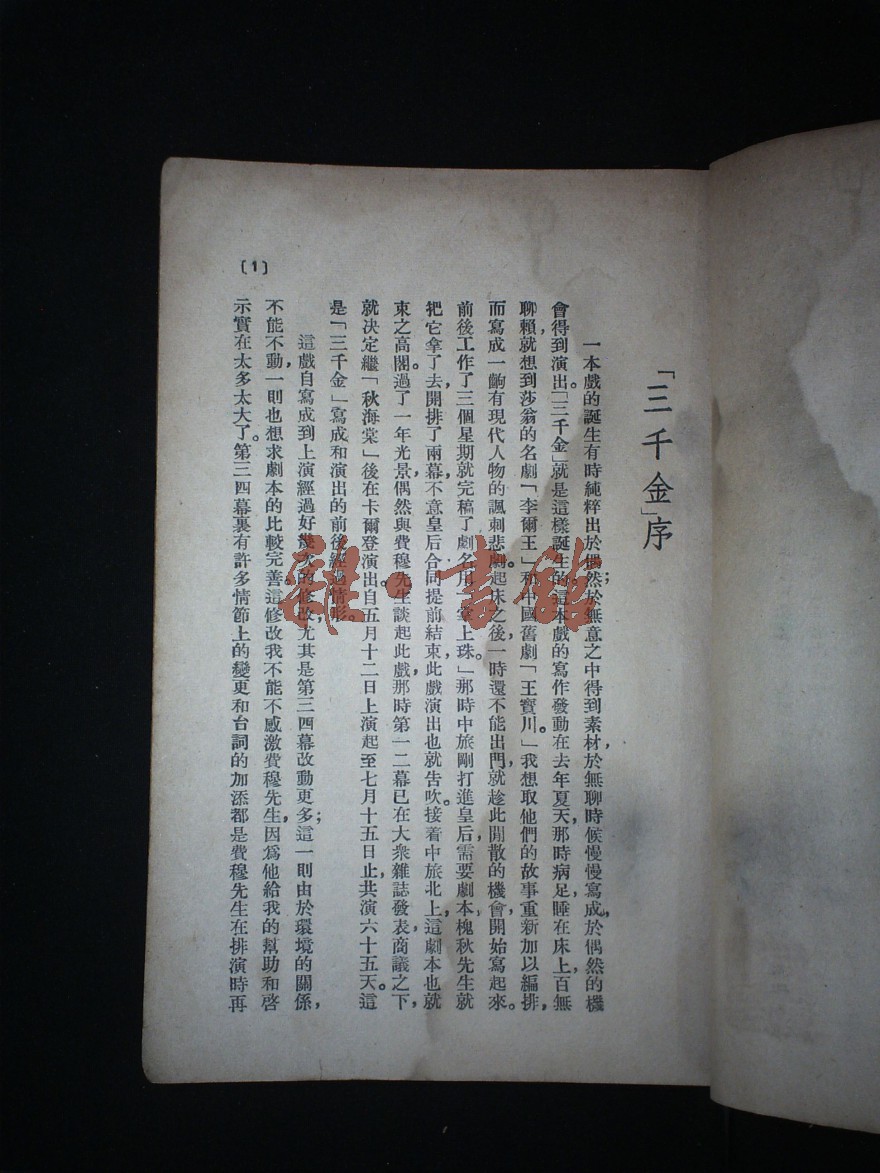 「三千金」序
一本戲的誕生有時純粹出於偶然；於無意之中得到素材，於無聊時候慢慢寫成，於偶然的機
會得到演出。「三千金」就是這樣誕生的。這本戲的寫作發動在去年夏天，那時病足，睡在床上，百無
聊賴，就想到莎翁的名劇「李爾王」和中國舊劇「王寶川。」我想取他們的故事重新加以編排，
而寫成一齣有現代人物的諷刺悲劇。起床之後，一時還不能出門，就趁此閒散的機會，開始寫起來。
前後工作了三個星期，就完稿了，劇名用「掌上珠。」那時中旅剛打進皇后，需要劇本，槐秋先生就
把它拿了去，開排了兩幕，不意皇后合同提前結束，此戲演出也就告吹。接着中旅北上，這劇本也就
束之高閣。過了一年光景，偶然與費穆先生談起此戲，那時第一二幕已在大衆雜誌發表，商議之下，
就决定繼「秋海棠」後在卡爾登演出。自五月十二日上演起至七月十五日止，共演六十五天。這
是「三千金」寫成和演出的前後經過情形。
這戲自寫成到上演經過好幾次的修改，尤其是第三四幕改動更多；這一則由於環境的關係，
不能不動，一則也想求劇本的比較完善。這修改我不能不感激費穆先生，因爲他給我的幫助和啓
示實在太多太大了。第三四幕裏有許多情節上的變更和台詞的加添都是費穆先生在排演時再
〔1〕
雜·書館